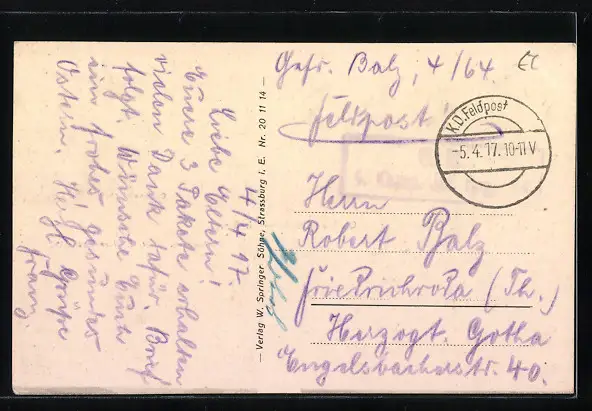 4/4 17.
Liebe Eltern!
Eure 3 Pakete erhalten
vielen Dank dafür. Brief
folgt. Wünsche Euch
ein frohes gesundes
Ostern. Herzl. Grüße
Franz
— Verlag W. Springer Söhne, Strassburg i. E. Nr. 20 11 14 —
Gefr. Balz, 4/64.
Feldpost
K.D. Feldpost
-5.4.17.10-11V
Herrn
Robert Balz
Friedrichroda (Th.)
Herzogt. Gotha
Engelsbacherstr. 40.